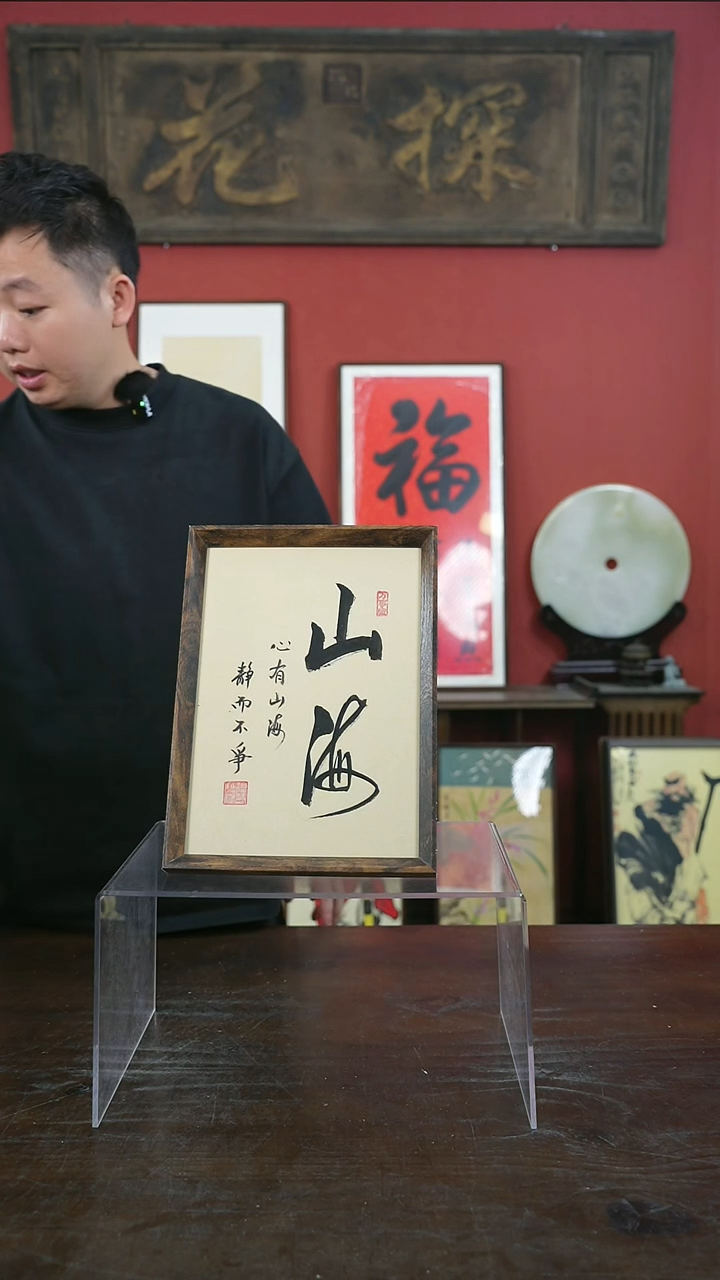 探花
福
山海
心有山海
静而不争